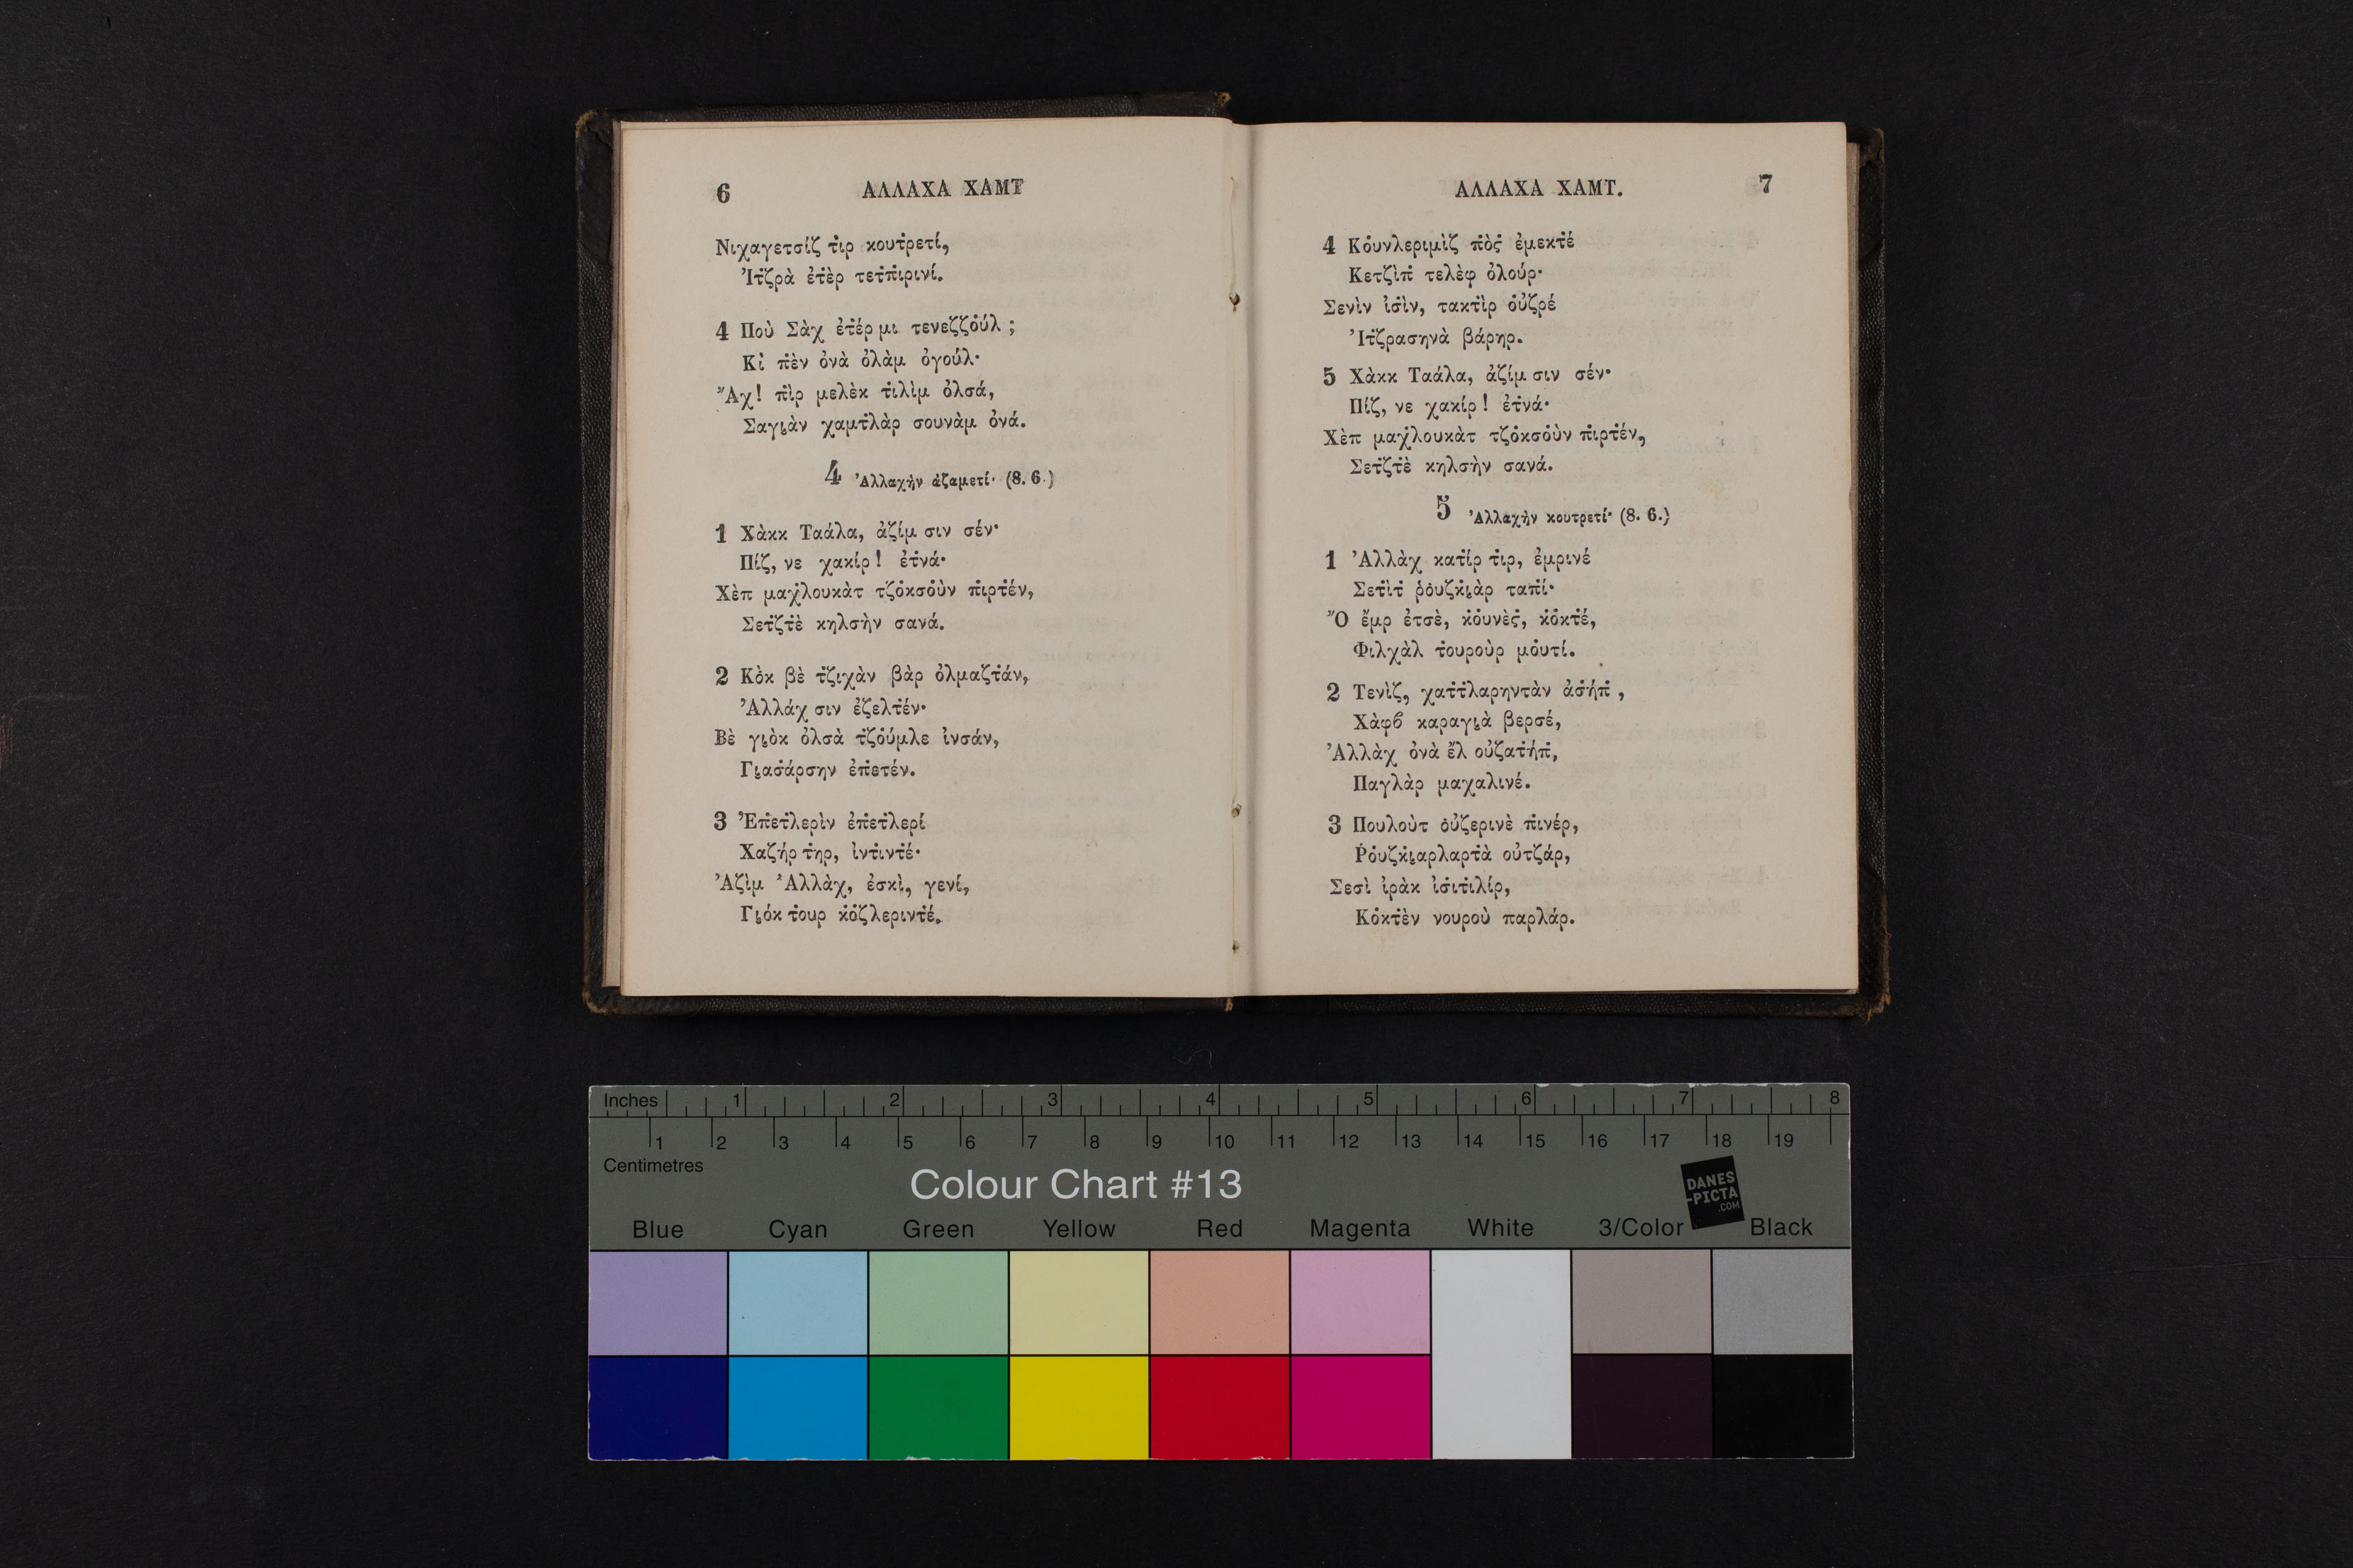 6 ΑΛΛΑΧΑ ΧΑΜΤ
Νιχαγετσίζ τ̇ιρ κουτ̇ρετί,
Ἰτ̇ζρὰ ἐτ̇ὲρ τετ̇π̇ιρινί.
4 Ποὺ Σὰχ ἐτ̇έρ μι τενεζζο̇ύλ ;
Κὶ π̇ὲν ὀνὰ ὀλὰμ ὀγούλ·
Ἄχ! π̇ὶρ μελὲκ τ̇ιλὶμ ὀλσά,
Σαγιὰν χαμτ̇λὰρ σουνὰμ ὀνά.
4 Ἀλλαχὴν ἀζαμετί· (8. 6.)
1 Χὰκκ Ταάλα, ἀζίμ σιν σέν·
Πίζ, νε χακίρ! ἐτ̇νά·
Χὲπ μαχ̇λουκὰτ τζο̇κσο̇ὺν π̇ιρτ̇έν,
Σετ̇ζτ̇ὲ κηλσὴν σανά.
2 Κο̇̀κ βὲ τ̇ζιχὰν βὰρ ὀλμαζτ̇άν,
Ἀλλάχ σιν ἐζελτ̇έν·
Βὲ γιὸκ ὀλσὰ τ̇ζο̇ύμλε ἰνσάν,
Γιασ̇άρσην ἐπ̇ετέν.
3 Ἐπ̇ετ̇λερὶν ἐπ̇ετ̇λερί
Χαζήρ τ̇ηρ, ἰντ̇ιντ̇έ·
Ἀζὶμ Ἀλλὰχ, ἐσκὶ, γενί,
Γιόκ τ̇ουρ κ̇ο̇ζλεριντ̇έ.
ΑΛΛΑΧΑ ΧΑΜΤ. 7
4 Κο̇υνλεριμὶζ π̇ὸς̇ ἐμεκτ̇έ
Κετζὶπ̇ τελὲφ ὀλούρ·
Σενὶν ἰσ̇ὶν, τακτ̇ὶρ ο̇ὐζρέ
Ἰτ̇ζρασηνὰ βάρηρ.
5 Χὰκκ Ταάλα, ἀζίμ σιν σέν·
Πίζ, νε χακίρ! ἐτ̇νά·
Χὲπ μαχ̇λουκὰτ τζο̇κσο̇ὺν π̇ιρτ̇έν,
Σετ̇ζτ̇ὲ κηλσὴν σανά.
5 Ἀλλαχὴν κουτρετί· (8. 6.)
1 Ἀλλὰχ κατ̇ίρ τ̇ιρ, ἐμρινέ
Σετ̇ὶτ̇ ῥο̇υζκ̇ιὰρ ταπ̇ί·
Ὂ ἔμρ ἐτσὲ, κ̇ο̇υνὲς̇, κ̇ο̇κτ̇έ,
Φιλχὰλ τ̇ουροὺρ μο̇υτί.
2 Τενὶζ, χατ̇τ̇λαρηντ̇ὰν ἀσ̇ήπ̇ ,
Χὰφϐ καραγιὰ βερσέ,
Ἀλλὰχ ὀνὰ ἒλ οὐζατ̇ήπ̇,
Παγλὰρ μαχαλινέ.
3 Πουλοὺτ ο̇ὐζερινὲ π̇ινέρ,
Ῥο̇υζκ̇ιαρλαρτ̇ὰ οὐτζάρ,
Σεσὶ ἰρὰκ ἰσ̇ιτ̇ιλίρ,
Κο̇κτ̇ὲν νουροὺ παρλάρ.
Inches 1 2 3 4 5 6 7 8
1 2 3 4 5 6 7 8 9 10 11 12 13 14 15 16 17 18 19
Centimetres
Colour Chart #13
DANES
-PICTA
.COM
Blue Cyan Green Yellow Red Magenta White 3/Color Black